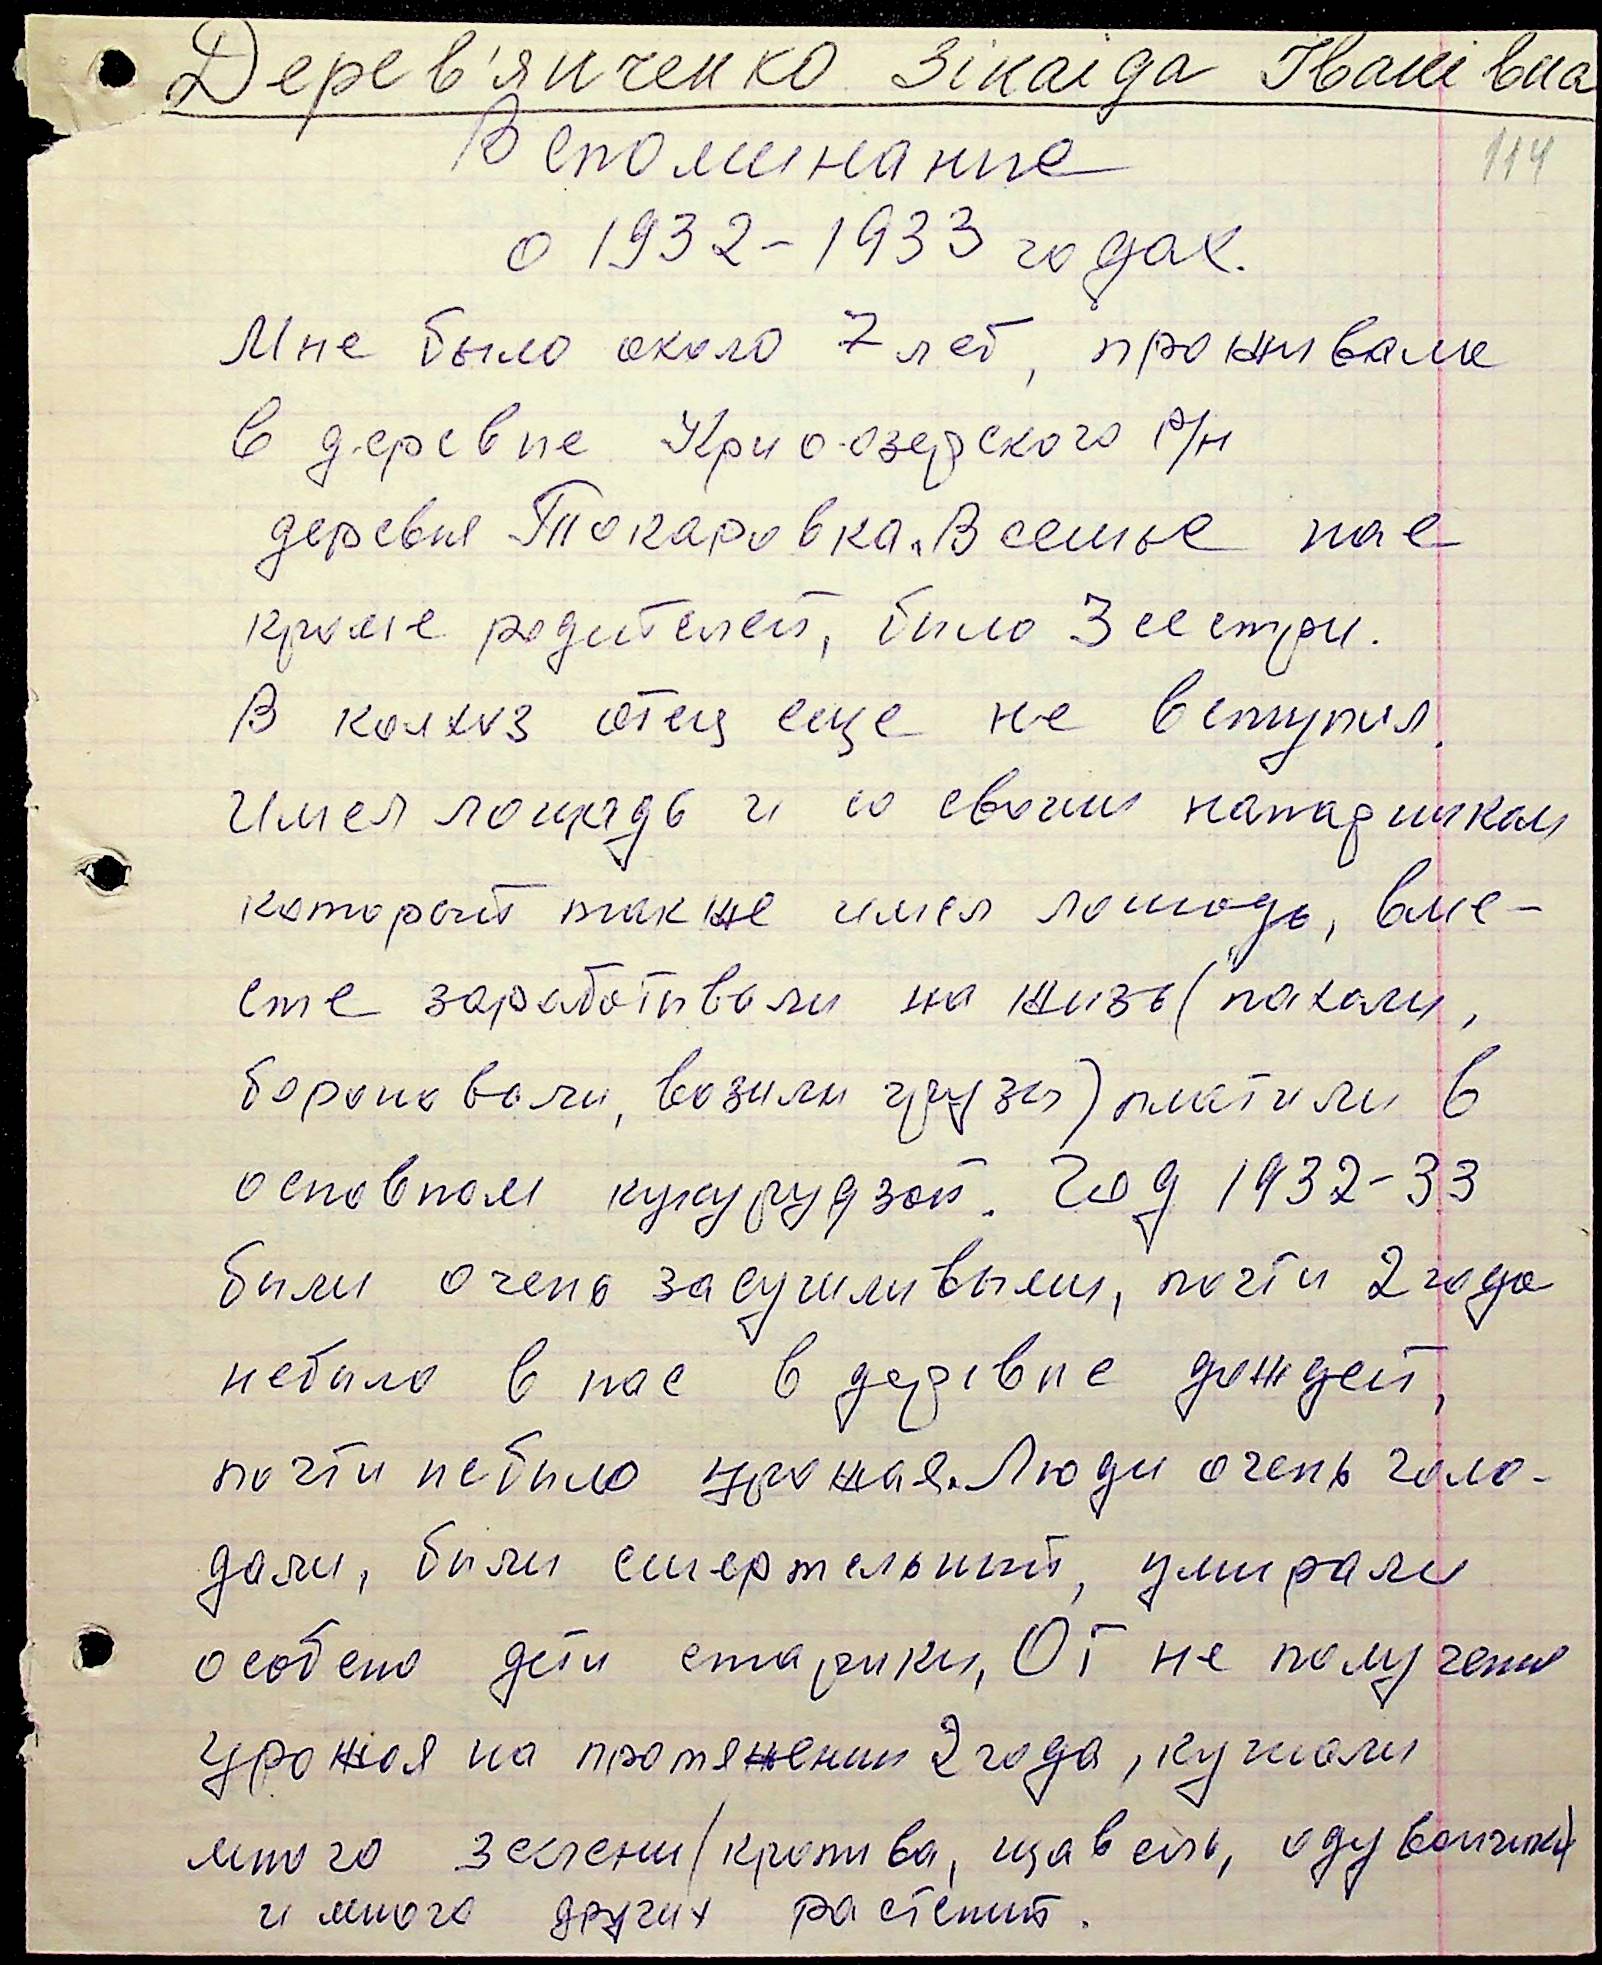 Дерев'янченко Зінаіда Іванівна
114
Вспоминание
о 1932-1933 годах.
Мне было около 7 лет, проживала
в деревне Криоозерского р/н
деревня Токаровка. В семье нас
кроме родителей, било 3 сестри.
В колхоз отец еще не вступил.
Имел лошадь и со своим напарником
который также имел лошадь, вме-
сте заработивали на жизь (пахали,
бороновали, возили грузы) платили в
основном кукурудзой. Год 1932-33
били очень засушливыми, почти 2 года
небило в нас в деревне дождей,
почти небило урожая. Люди очень голо-
дали, били смертельный, умирали
особено дети старики, От не получения
урожая на протяжении 2 года, кушали
много зелени (кропива, щавель, одуванчики)
и много других растений.